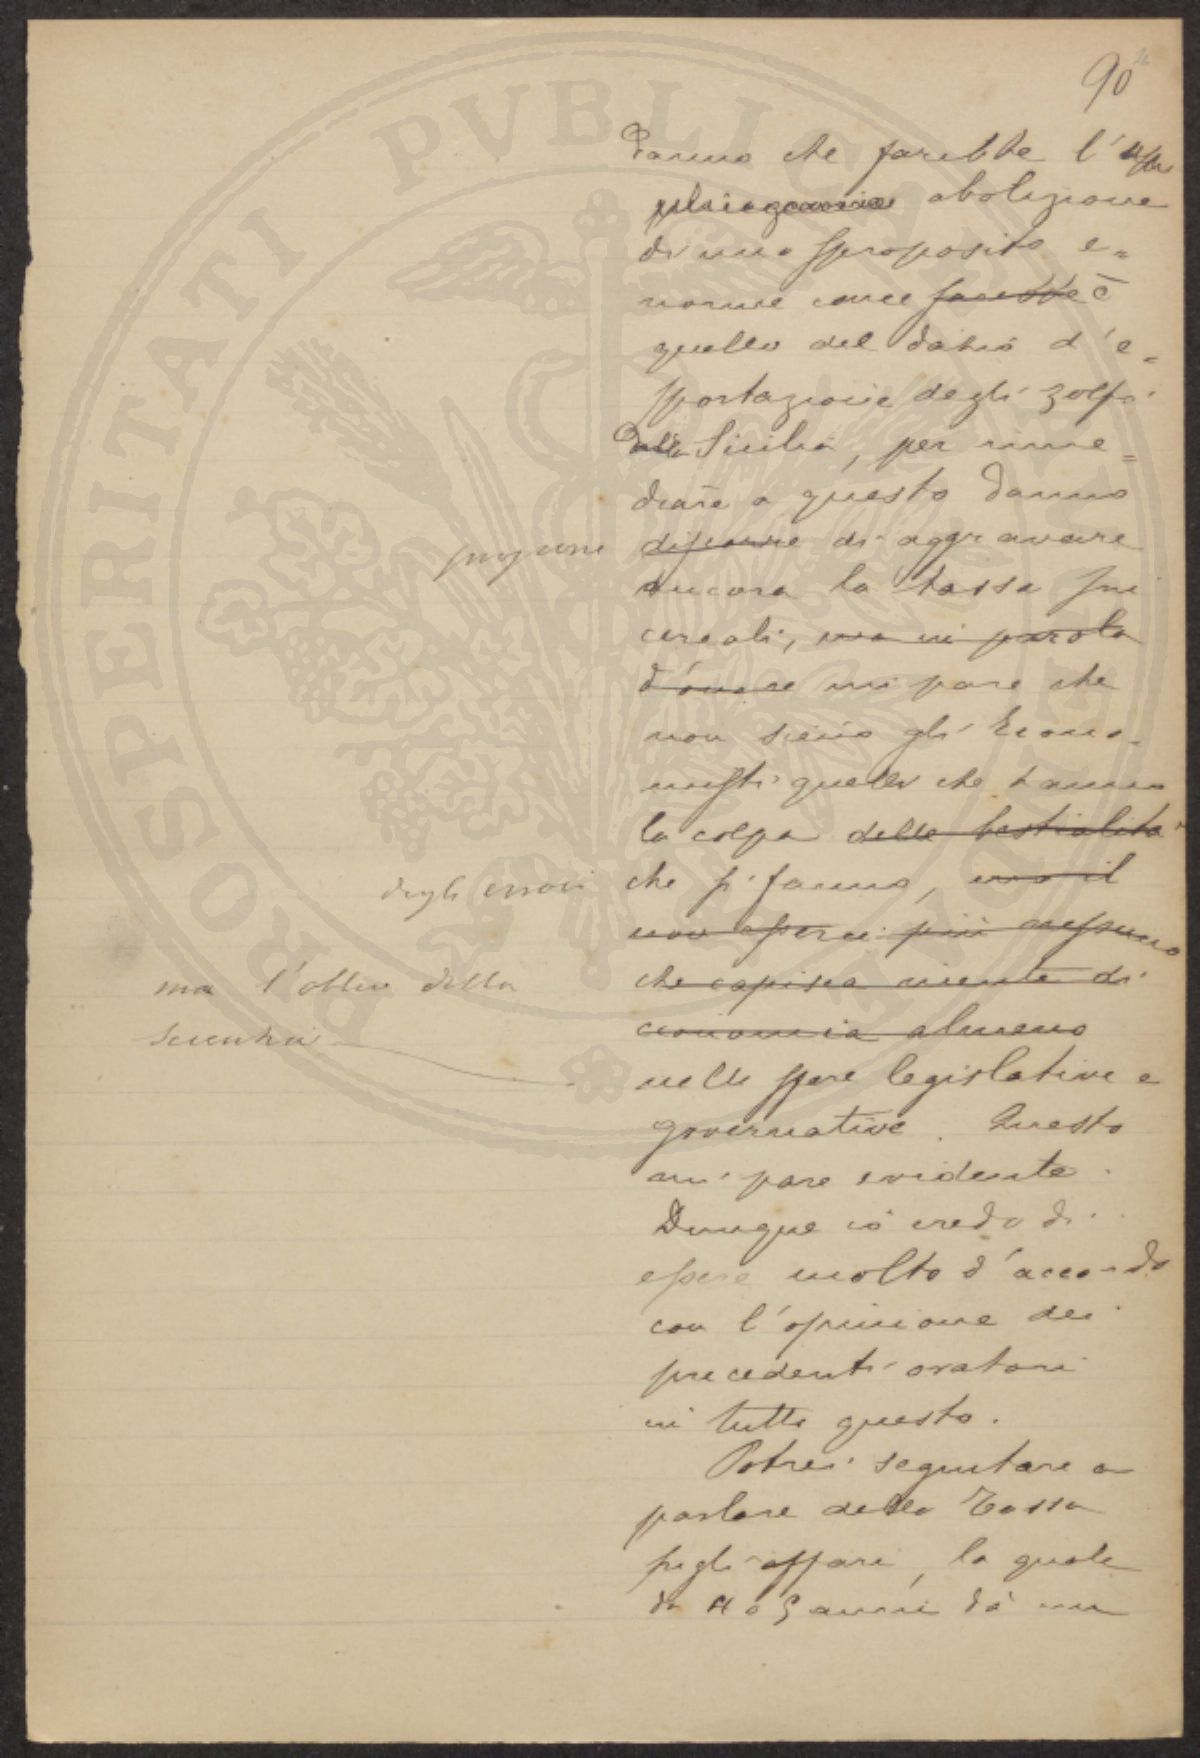 90
danno che farebbe l'
abolizione
di uno sproposito e=
norme come facesse è
quello del dazio d'e=
sportazione degli zolfi
dalla Sicilia, per rime=
diare a questo danno
propone
di aggravare
ancora la tassa sui
cereali, ma in parola
d'onore mi pare che
non sieno gli Econo=
misti quelli che hanno
la colpa delle bestialità
degli errori
che si fanno, ma il
non esserci più nessuno
ma l'oblio della
Scienza
che capisca niente di
economia almeno
nelle sfere legislative e
governative. Questo
mi pare evidente.
Dunque io credo di
essere molto d'accordo
con l'opinione dei
precedenti oratori
in tutto questo.
Potrei seguitare a
parlare della Tassa
sugli affari, la quale
da 4 o 5 anni dà un
PROSPERITATI PVBLICAE